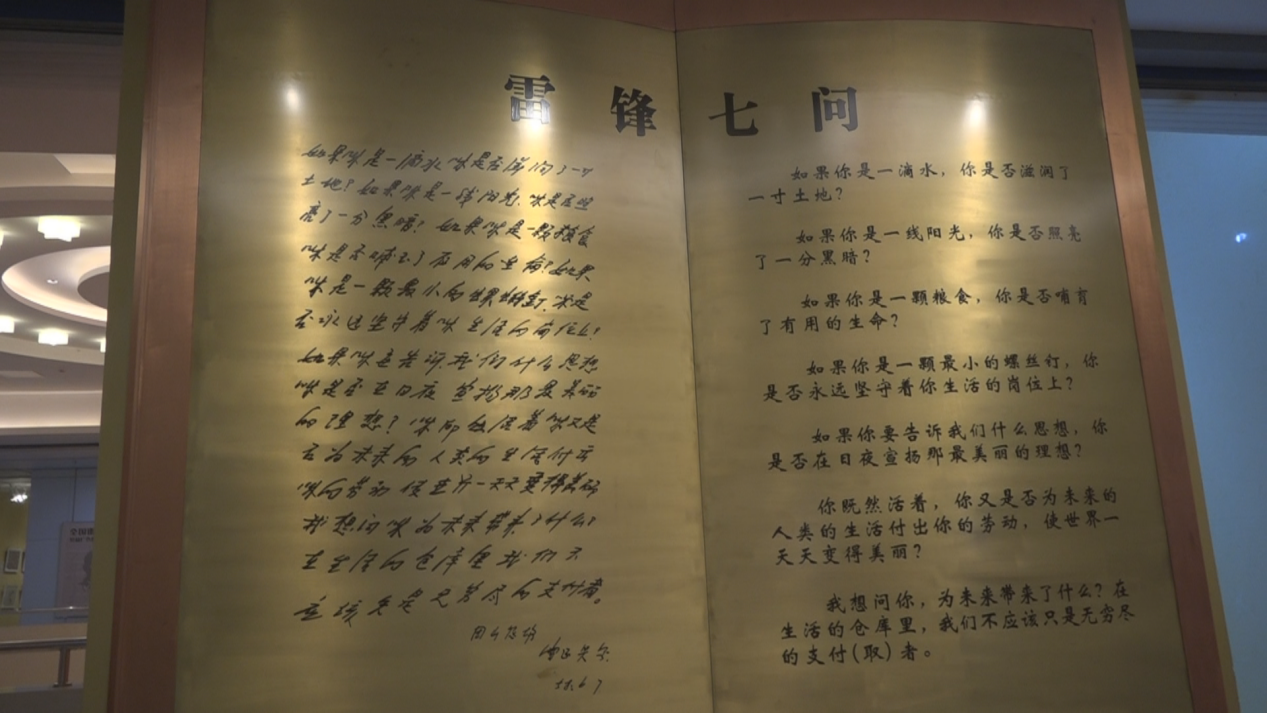 雷锋七问
如果你是一滴水你是否滋润了一寸
土地?如果你是一线阳光,你是否照
亮了一分黑暗?如果你是一颗粮食
你是否哺育了有用的生命?如果
你是一颗最小的螺丝钉,你是
否永远坚守着你生活的岗位上?
如果你要告诉我们什么思想
你是否在日夜宣扬那最美丽
的理想?你既然活着你又是
否为未来的人类的生活付出
你的劳动使世界一天天变得美丽
我想问你为未来带来了什么?
在生活的仓库里我们不
应该只是无穷尽的支付者。
58.6.7
如果你是一滴水,你是否滋润了
一寸土地?
如果你是一线阳光,你是否照亮
了一分黑暗?
如果你是一颗粮食,你是否哺育
了有用的生命?
如果你是一颗最小的螺丝钉,你
是否永远坚守着你生活的岗位上?
如果你要告诉我们什么思想,你
是否在日夜宣扬那最美丽的理想?
你既然活着,你又是否为未来的
人类的生活付出你的劳动,使世界一
天天变得美丽?
我想问你,为未来带来了什么?在
生活的仓库里,我们不应该只是无穷尽
的支付(取)者。